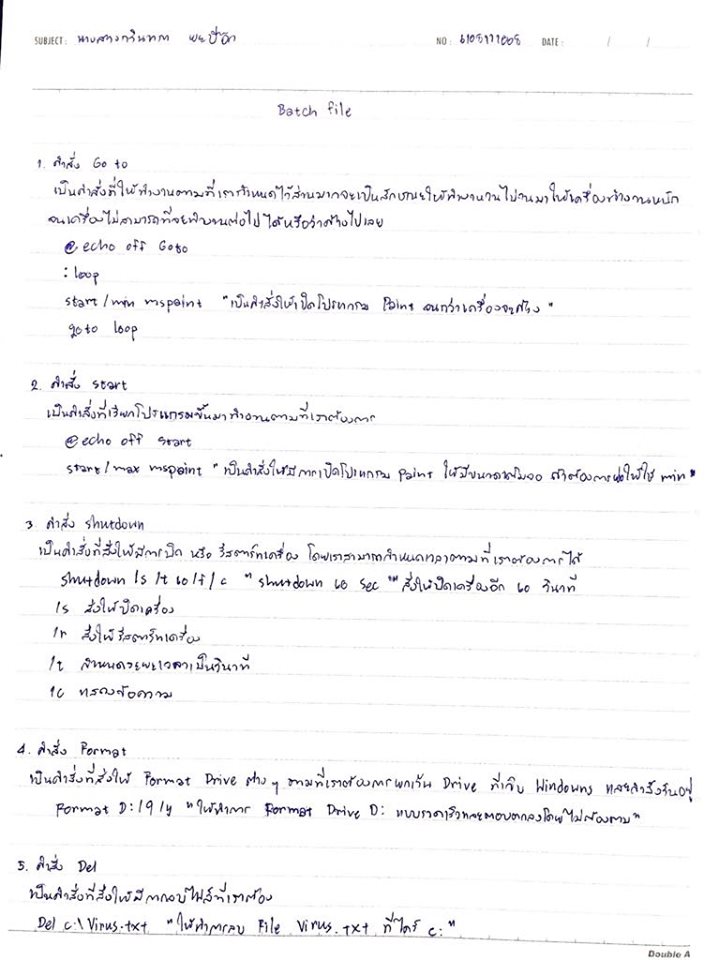 SUBJECT : นางสาว NO : 6108111008 DATE : / /
Batch file
1. คำสั่ง Go to
เป็นคำสั่งที่ให้ทำงานตามที่เรากำหนดไว้ส่วนมากจะเป็นลักษณะให้ทำงานวนไปวนมาให้เครื่องทำงานหนัก
จนเครื่องไม่สามารถที่จะทำงานต่อไปได้หรือว่าค้างไปเลย
@echo off Goto
:loop
start/min mspaint "เป็นคำสั่งให้เปิดโปรแกรม Paint จนกว่าเครื่องจะค้าง"
goto loop
2. คำสั่ง start
เป็นคำสั่งที่เรียกโปรแกรมขึ้นมาทำงานตามที่เราต้องการ
@echo off start
start/max mspaint "เป็นคำสั่งให้มีการเปิดโปรแกรม Paint ให้มีขนาดเต็มจอ ถ้าต้องการย่อให้ใช้ min"
3. คำสั่ง shutdown
เป็นคำสั่งที่สั่งให้มีการปิด หรือ รีสตาร์ทเครื่อง โดยเราสามารถกำหนดเวลาตามที่เราต้องการได้
shutdown /s /t 60 /f / c " shutdown 60 sec "" สั่งให้ปิดเครื่องอีก 60 วินาที
/s สั่งให้ปิดเครื่อง
/r สั่งให้รีสตาร์ทเครื่อง
/t กำหนดระยะเวลาเป็นวินาที
/c แสดงข้อความ
4. คำสั่ง Format
เป็นคำสั่งที่สั่งให้ Format Drive ต่างๆ ตามที่เราต้องการยกเว้น Drive ที่เก็บ Windowns และกำลังรันอยู่
Format D: /q /y "ให้ทำการ Format Drive D: แบบรวดเร็วและตอบตกลงโดยไม่ต้องถาม"
5. คำสั่ง Del
เป็นคำสั่งที่สั่งให้มีการลบไฟล์ที่เราต้อง
Del c:\Virus.txt "ให้ทำการลบ File Virus.txt ที่ไดร์ c:"
Double A